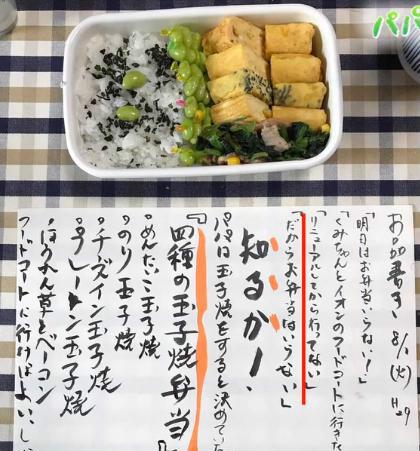 パパ
お品書き 8/1(火) H29
「明日はお弁当いらない!」
「くみちゃんとイオンのフードコートに行きた
「リニューアルしてから行ってない」
「だからお弁当はいらない」
知るかー!
パパは玉子焼をすると決めていた
『四種の玉子焼弁当』
•めんたいこ玉子焼
•のり玉子焼
•チーズイン玉子焼
•プレーン玉子焼
•ほうれん草とベーコン
フードコートに行けばよい、し